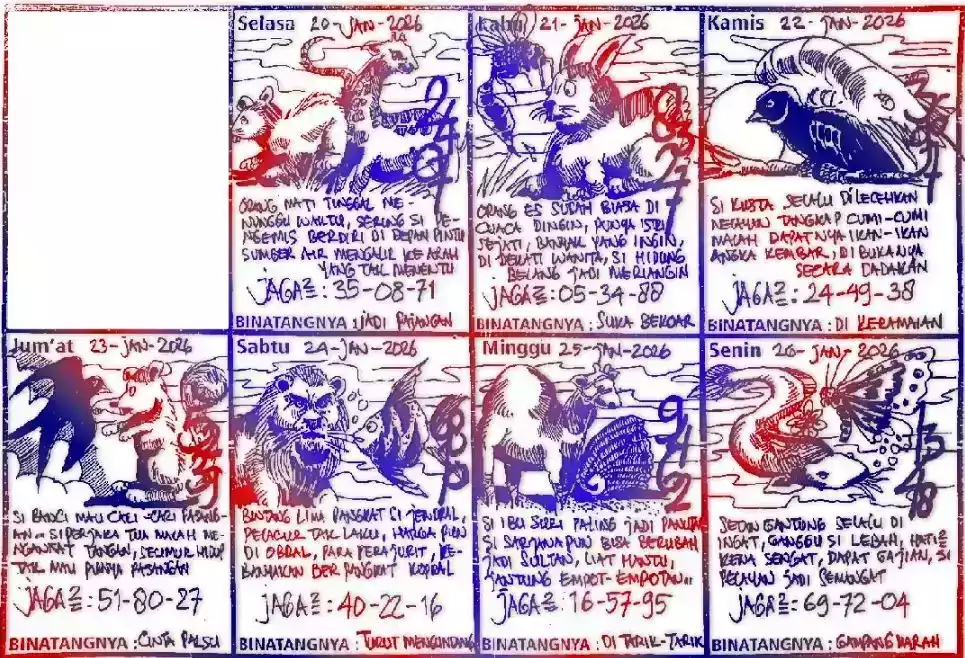 Selasa 20-JAN-2026
ORANG MATI TUNGGAL ME-
NUNGGU WAKTU, SERING SI PE-
NGEMIS BERDIRI DI DEPAN PINTU
SUMBER AIR MENGALIR KE ARAH
YANG TAK MENENTU
JAGA2 : 35-08-71
BINATANGNYA : JADI PAJANGAN
Rabu 21-JAN-2026
ORANG ES SUDAH BIASA DI
CUACA DINGIN, PUNYA ISTRI
SEJATI, BANYAK YANG INGIN,
DI DEKATI WANITA, SI HIDUNG
BELANG JADI MERIANGIN
JAGA2 : 05-34-88
BINATANGNYA : SUKA BEKOAR
Kamis 22-JAN-2026
SI KUSTA SELALU DILECEHKAN
NELAYAN TANGKAP CUMI-CUMI
MALAH DAPATNYA IKAN-IKAN
ANGKA KEMBAR, DIBUKANYA
SECARA DADAKAN
JAGA2 : 24-49-38
BINATANGNYA : DI KERAMAIAN
Jum'at 23-JAN-2026
SI BANCI MAU CARI-CARI PASANG-
AN.. SI PERJAKA TUA MALAH ME-
NGANGKAT TANGAN, SEUMUR HIDUP
TAK MAU PUNYA PASANGAN
JAGA2 : 51-80-27
BINATANGNYA : CINTA PALSU
Sabtu 24-JAN-2026
680
BINTANG LIMA PANGKAT SI JENDRAL,
PELACUR TAK LAKU, HARGA PUN
DI OBRAL, PARA PERAJURIT, KE-
BANYAKAN BERPANGKAT KOPRAL
JAGA2 : 40-22-16
BINATANGNYA : TURUT MENGUNDANG
Minggu 25-JAN-2026
SI IBU SURI PALING JADI PANUTAN
SI SARJANA PUN BISA BERUBAH
JADI SULTAN, LIAT HANTU,
JANTUNG EMPOT-EMPOTAN..
JAGA2 : 16-57-95
BINATANGNYA : DI TARIK-TARIK
Senin 26-JAN-2026
SEDAN GANTUNG SELALU DI
INGAT, GANGGU SI LEBAH, HATI2
KENA SENGAT, DAPAT GAJIAN, SI
PELAYAN JADI SEMANGAT
JAGA2 : 69-72-04
BINATANGNYA : GAMPANG MARAH